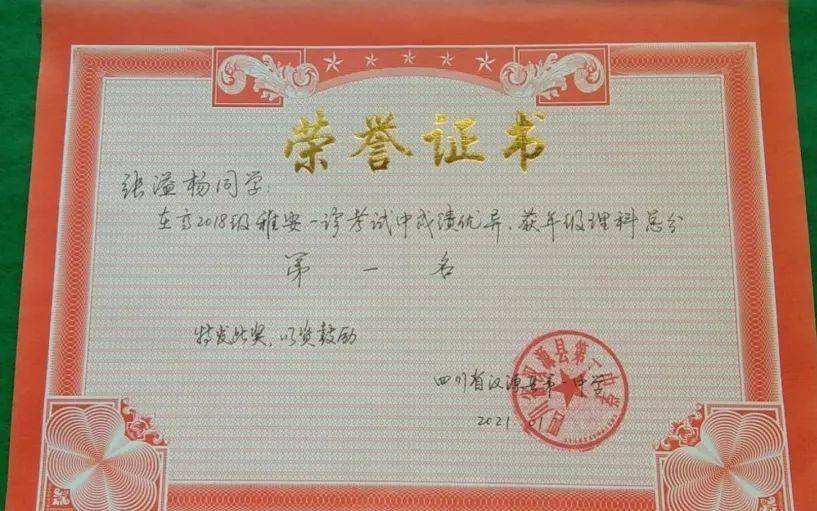 荣誉证书
张溢杨同学:
在高2018级雅安一诊考试中成绩优异,获年级理科总分
第一名
特发此奖,以资鼓励
四川省汉源县第一中学
2021.01
四川省汉源县第一中学